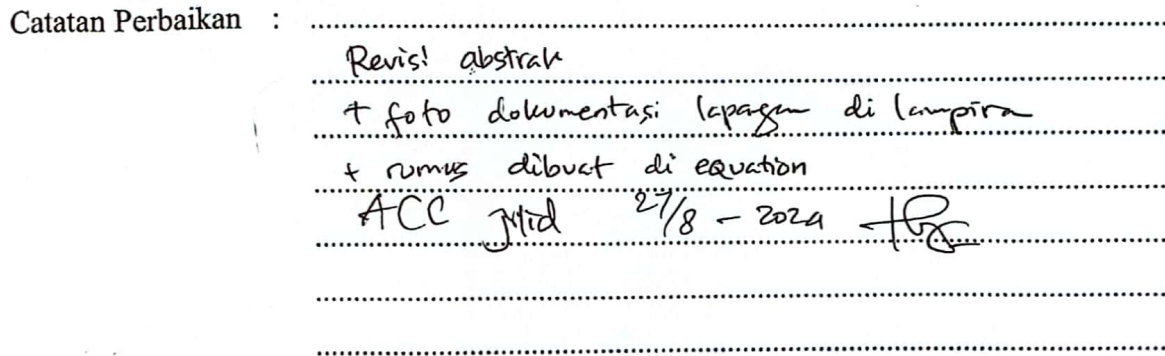 Catatan Perbaikan :
Revisi abstrak
+ foto dokumentasi lapagan di lampira
+ rumus dibuat di equation
ACC Jilid 27/8 - 2024